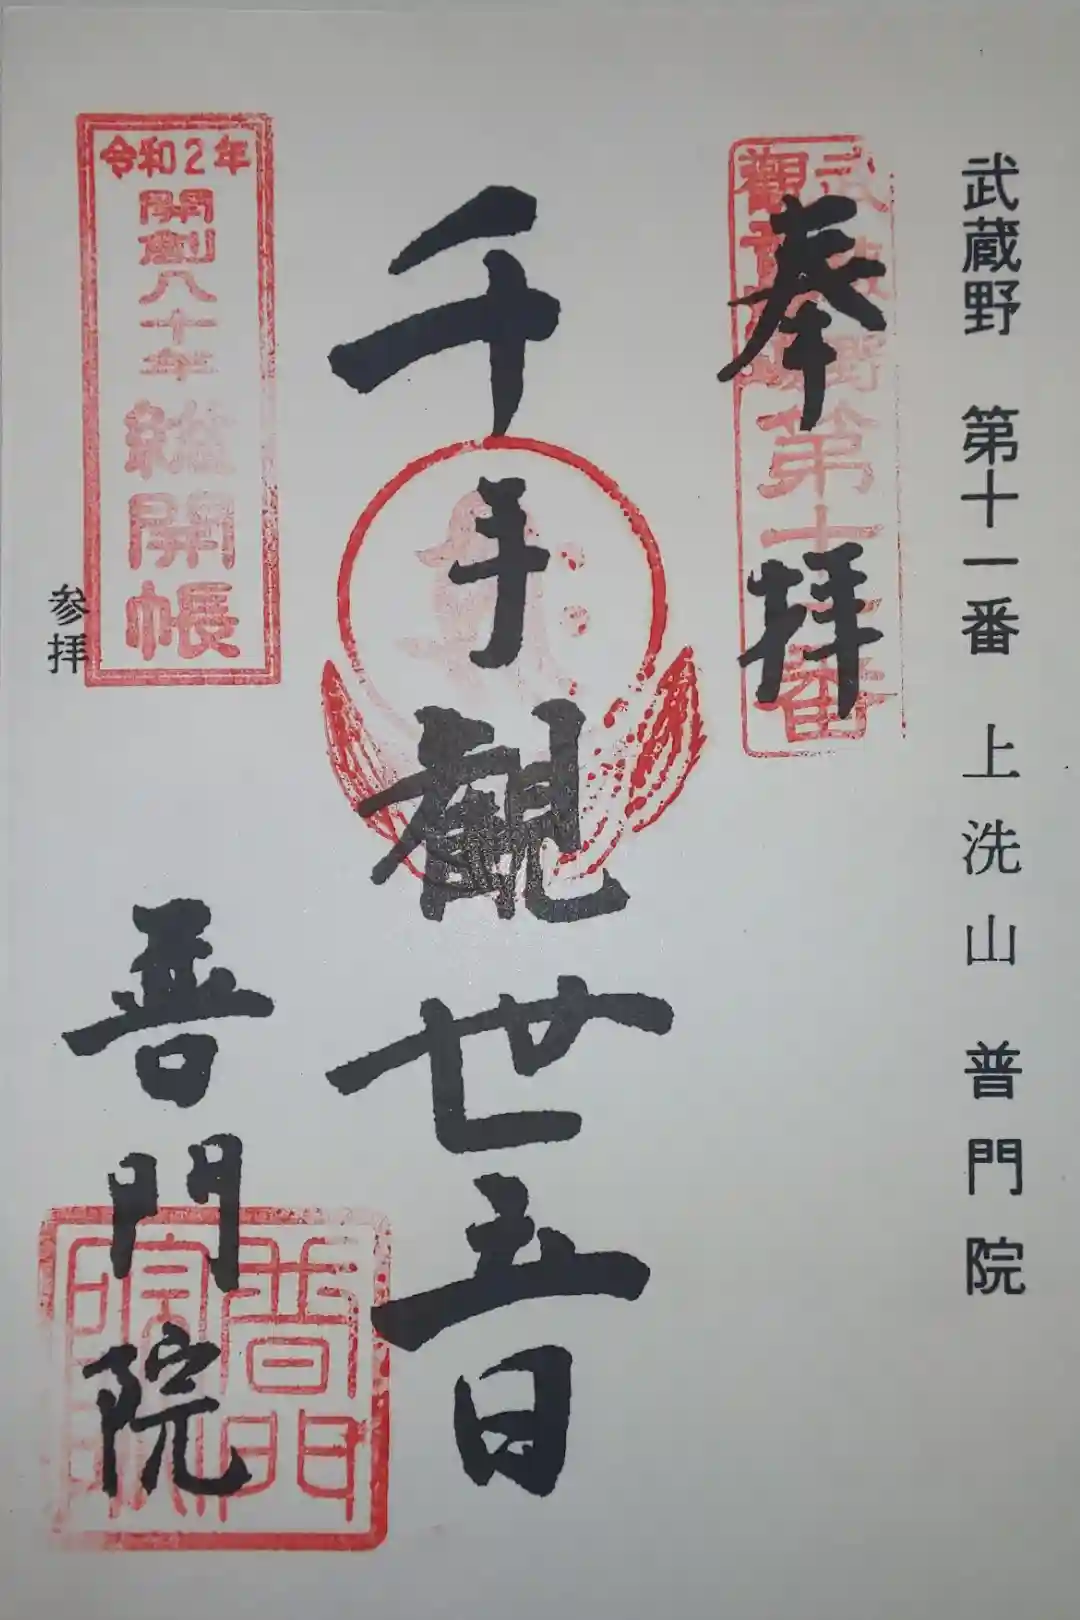 武蔵野 第十一番 上洗山 普門院
奉拝
武蔵野
觀音
第十一番
千手観世音
令和2年
開創八十年
總開帳
参拝
普門院
普門院